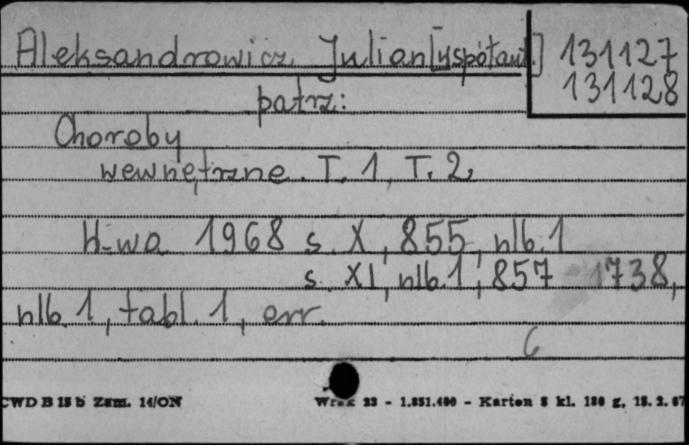 Aleksandrowicz Julian [współaut.] 131127
131128
patrz:
Choroby
wewnętrzne. T. 1, T. 2
W-wa 1968 s. X, 855, nlb. 1
s. XI, nlb. 1, 857-1738,
nlb. 1, tabl. 1, err.
6
CWD B 15 b Zam. 14/ON - 1.851.400 - Karton 5 kl. 180 g, 15. 2. 67